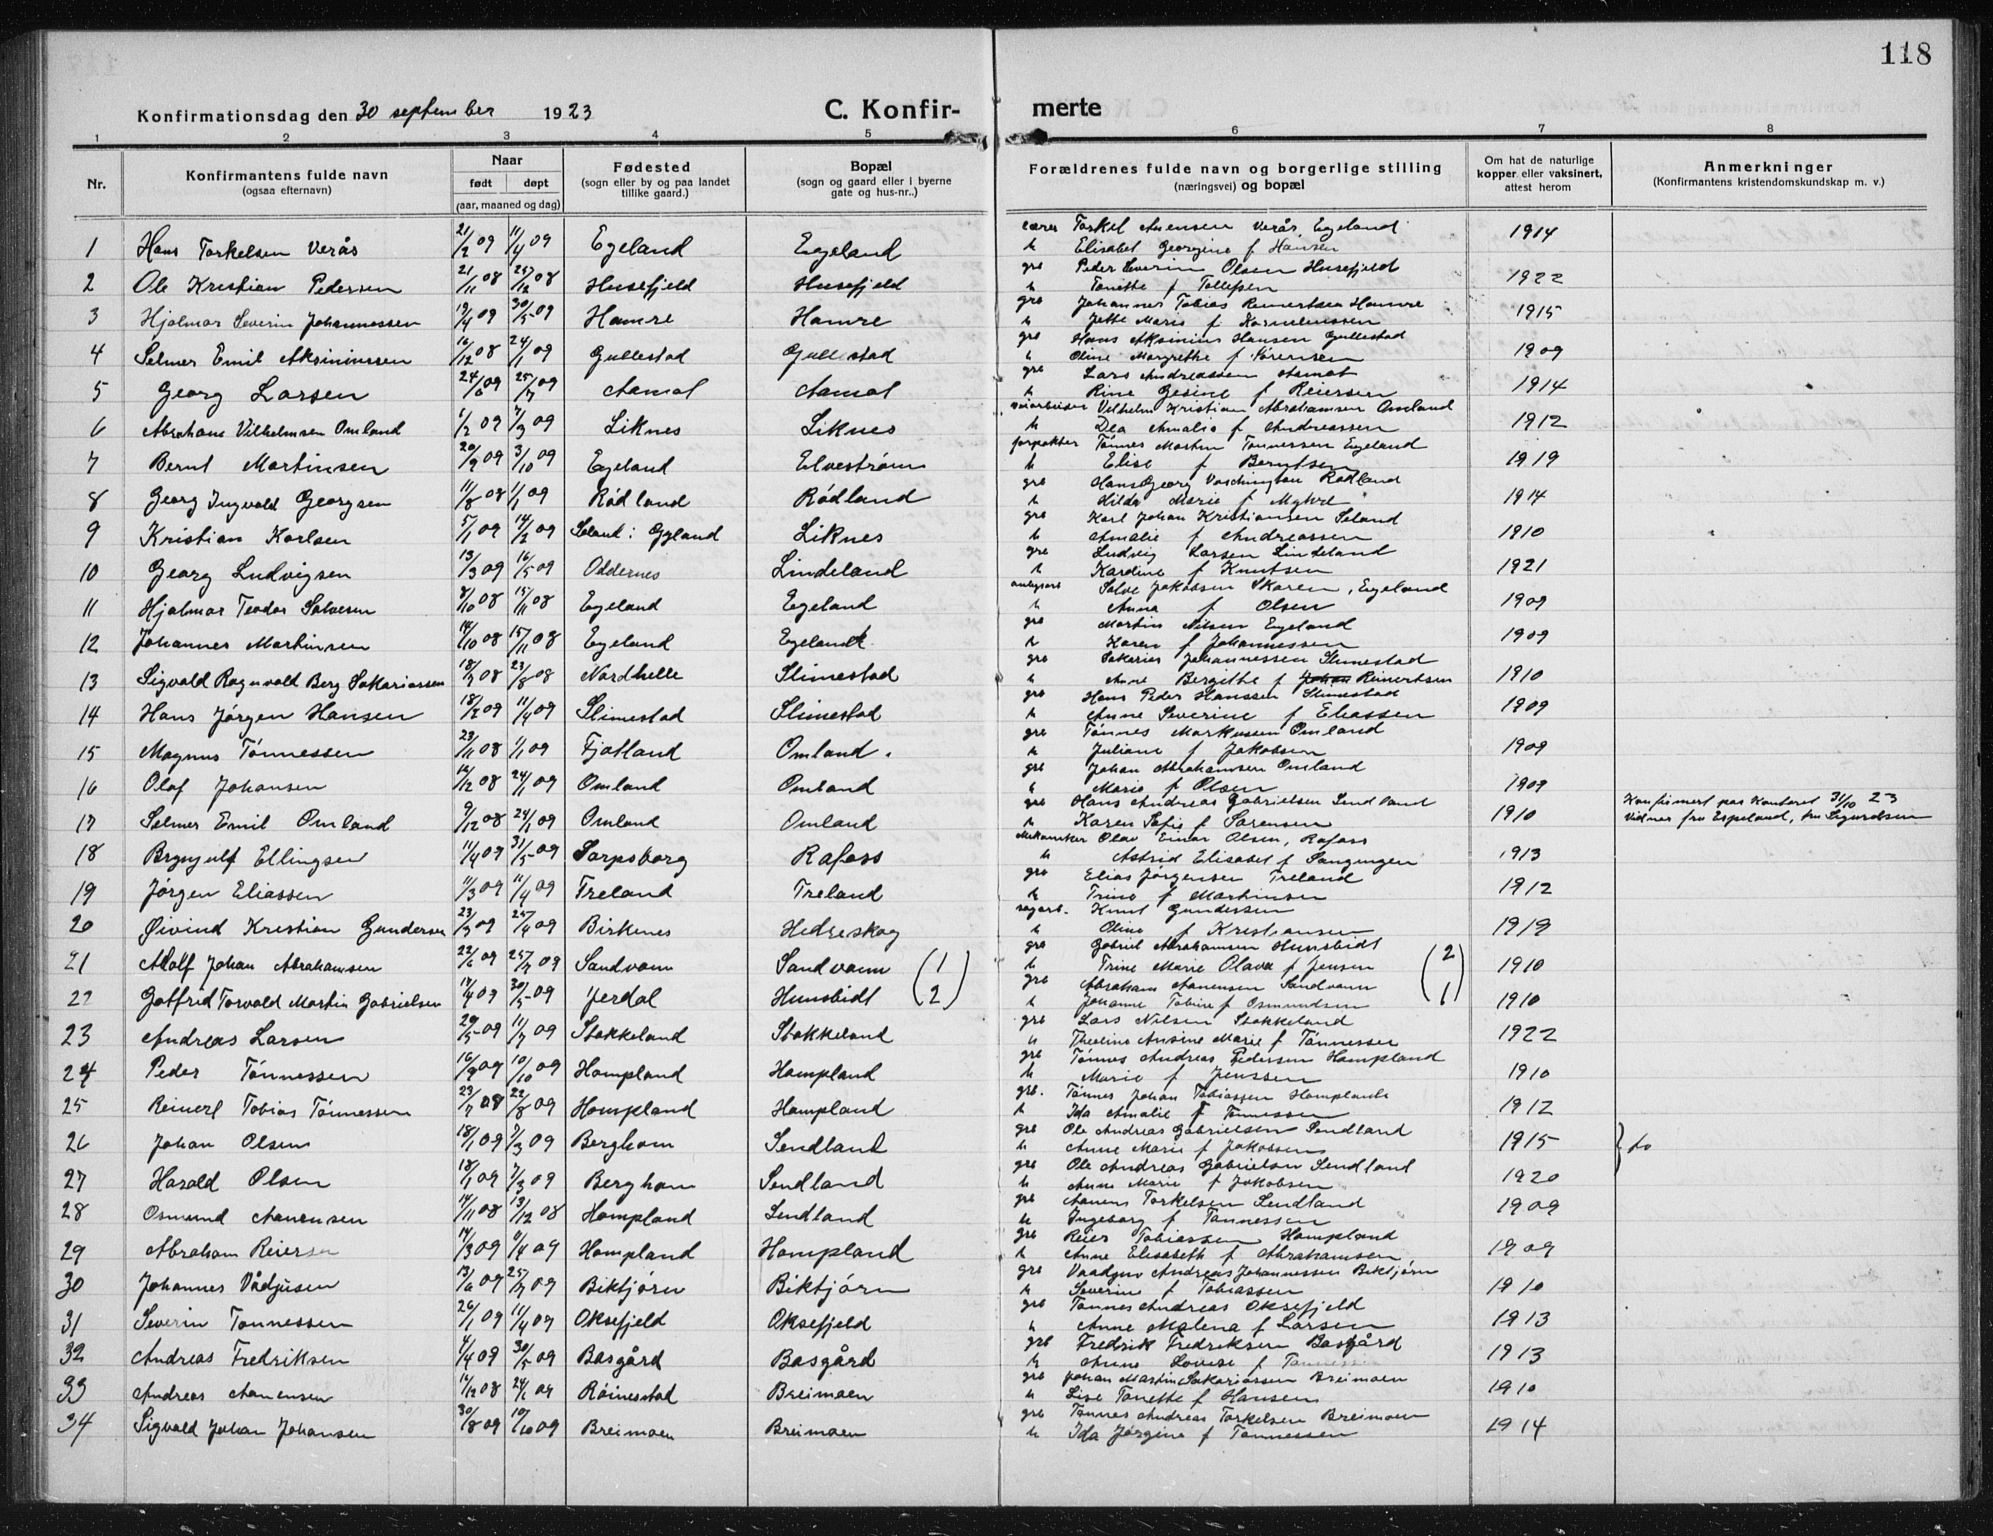 118
Konfirmationsdag den 30 september 1923 C. Konfir- merte
1 2 3 4 5 6 7 8
Nr. Konfirmantens fulde navn (ogsaa efternavn) Naar født døpt (aar, maaned og dag) Fødested (sogn eller by og paa landet tillike gaard.) Bopæl (sogn og gaard eller i byerne gate og hus-nr..) Forældrenes fulde navn og borgerlige stilling (næringsvei) og bopæl Om hat de naturlige kopper eller vaksinert, attest herom Anmerkninger (Konfirmantens kristendomskundskap m. v.)
1 Hans Torkelsen Verås 21/2 09 11/4 09 Egeland Egeland Torkel Aanensen Verås, Egeland
h Elisabet Georgine f Hansen 1914
2 Ole Kristian Pedersen 21/11 08 25/12 08 Husefjeld Husefjeld grb Peder Severin Olsen Husefjeld
h Tonette f Tollefsen 1922
3 Hjalmar Severin Johannessen 19/4 09 30/5 09 Hamre Hamre grb Johannes Tobias Reinertsen Hamre
h Jette Marie f Kornelinssen 1915
4 Selmer Emil Aksininssen 16/12 08 24/1 09 Gullestad Gullestad grb Hans Aksinius Hansen Gullestad
h Oline Margrethe f Sørensen 1909
5 Georg Larsen 24/6 09 25/7 09 Aamot Aamot grb Lars Andreassen Aamot
h Rine Gesine f Reiersen 1914
6 Abraham Vilhelmsen Omland 1/2 09 7/3 09 Liknes Liknes Vilhelm Kristian Abrahamsen Omland
h Dea Amalie f Andreassen 1912
7 Bernt Martinsen 20/9 09 3/10 09 Egeland Elvestrøm forpakter Tønnes Martin Tønnessen Egeland
h Elise f Berntsen 1919
8 Georg Ingvald Georgsen 11/8 08 1/1 09 Rødland Rødland grb Hans Georg Vaschington Rødland
h Hilda Marie f Myhre 1914
9 Kristian Karlsen 5/1 09 14/2 09 Seland i Gyland Liknes grb Karl Johan Kristiansen Seland
h Amalie f Andreassen 1910
10 Georg Ludvigsen 13/3 09 16/5 09 Oddernes Lindeland grb Ludvig Larsen Lindeland
h Kardine f Knutsen 1921
11 Hjalmar Teodor Salvesen 8/10 08 15/11 08 Egeland Egeland Salve Jakobsen Skaren, Egeland
h Anna f Olsen 1909
12 Johannes Martinsen 14/10 08 15/11 08 Egeland Egeland grb Martin Nilsen Egeland
h Karen f Johannessen 1909
13 Sigvald Ragnvald Berg Sakariassen 18/7 08 23/8 08 Nordhelle Slimestad grb Sakarias Johannessen Slimestad
h Anne Bergithe f Reinertsen 1910
14 Hans Jørgen Hansen 18/2 09 11/4 09 Slimestad Slimestad grb Hans Peder Hanssen Slimestad
h Anne Severine f Eliassen 1909
15 Magnus Tønnessen 23/11 08 1/1 09 Fjotland Omland. grb Tønnes Markussen Omland
h Juliane f Jakobsen 1909
16 Olaf Johansen 12/12 08 24/1 09 Omland Omland grb Johan Abrahamsen Omland
h Marie f Olsen 1909
17 Selmer Emil Omland 9/12 08 24/1 09 Omland Omland grb Hans Andreas Gabrielsen Sendland
h Karen Sofie f Sørensen 1910 Konfirmert paa Kontoret 31/10 23
Vidner fru Espeland, fru Sigurdsen
18 Brynjulf Ellingsen 11/4 09 31/5 09 Sarpsborg Rafoss Mekaniker Olav Einar Olsen, Rafoss
h Astrid Elisabet f 1913
19 Jørgen Eliassen 11/3 09 11/4 09 Treland Treland grb Elias Jørgensen Treland
h Trine f Martinsen 1912
20 Øivind Kristian Gundersen 23/3 09 25/4 09 Birkenes Hedreskog sagarb. Knut Gundersen
h Oline f Kristiansen 1919
21 Adolf Johan Abrahamsen 22/6 09 25/7 09 Sandvann Sandvann (1) grb Gabriel Abrahamsen Hunsbidt (2)
h Trine Marie Olava f Jensen 1910
22 Gotfred Torvald Martin Gabrielsen 19/4 09 30/5 09 Jerdal Hunsbidt (2) grb Abraham Aanensen Sandvann (1)
h Johanne Tobine f Osmundsen 1910
23 Andreas Larsen 29/5 09 11/7 09 Stokkeland Stokkeland grb Lars Nilsen Stokkeland
h Theoline Ansine Marie f Tønnessen 1922
24 Peder Tønnessen 16/9 09 10/10 09 Hompland Hompland grb Tønnes Andreas Pedersen Hompland
h Marie f Jenssen 1910
25 Reinert Tobias Tønnessen 23/7 08 22/8 09 Hompland Hompland grb. Tønnes Johan Tobiassen Hompland
h Ida Amalie f Tønnessen 1912
26 Johan Olsen 18/1 09 7/3 09 Berghom Sendland grb Ole Andreas Gabrielsen Sendland
h Anne Marie f Jakobsen 1915 } do
27 Harald Olsen 18/1 09 7/3 09 Berghom Sendland grb Ole Andreas Gabrielsen Sendland
h Anne Marie f Jakobsen 1920
28 Osmund Aanensen 14/11 08 13/12 08 Hompland Sendland grb Aanen Torkelsen Sendland
h Ingeborg f Tønnessen 1909
29 Abraham Reiersen 14/3 09 11/4 09 Hompland Hompland grb Reier Tobiassen Hompland
h Anne Elisabeth f Abrahamsen 1909
30 Johannes Vådjusen 13/6 09 25/7 09 Biktjørn Biktjørn grb Vaadjuv Andreas Johannessen Biktjørn
h Severine f Tobiassen 1910
31 Severin Tønnessen 26/1 09 11/4 09 Oksefjeld Oksefjeld grb Tønnes Andreas Oksefjeld
h Anne Malena f Larsen 1913
32 Andreas Fredriksen 4/4 09 30/5 09 Basgård Basgård grb Fredrik Fredriksen Basgård
h Anne Lovise f Tønnessen 1913
33 Andreas Aanensen 14/12 08 24/1 09 Røinestad Breimoen grb Johan Martin Sakariassen Breimoen
h Lise Tonette f Hansen 1910
34 Sigvald Johan Johansen 30/8 09 10/10 09 Breimoen Breimoen grb Tønnes Andreas Torkelsen Breimoen
h Ida Jørgine f Tønnessen 1914